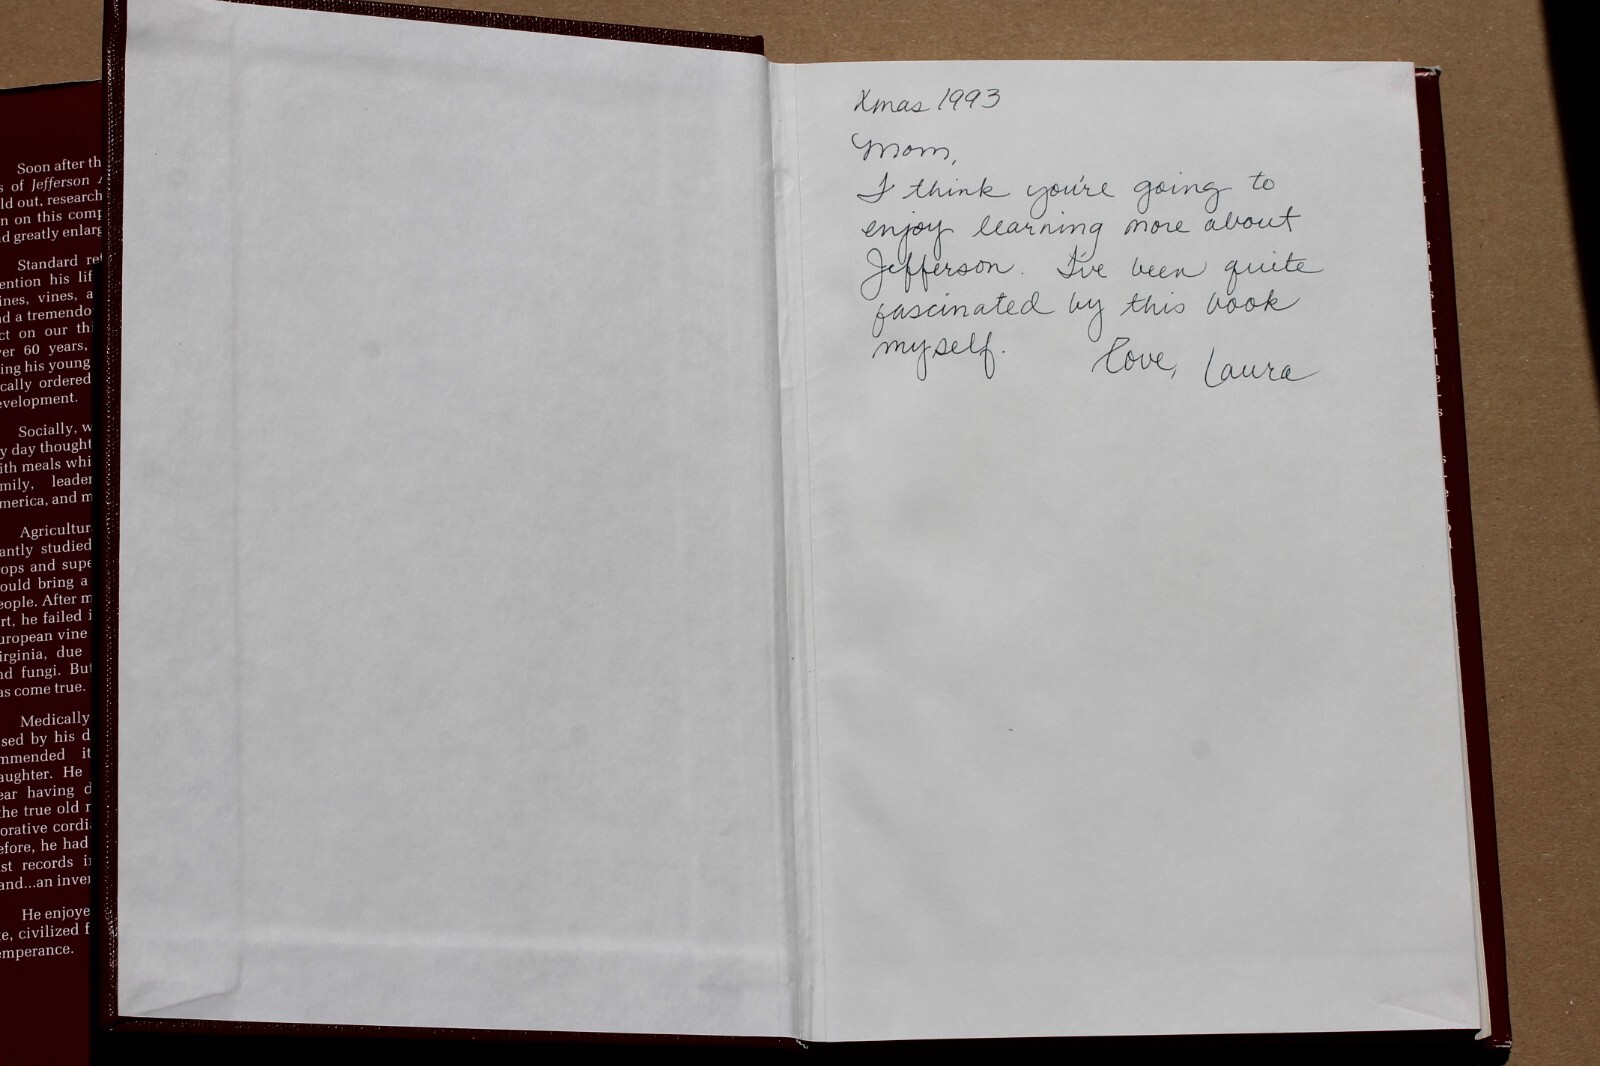 Soon after th
s of Jefferson
ld out, research
n on this comp
d greatly enlarg
Standard re
ention his lif
ines, vines, a
d a tremendo
ct on our thi
er 60 years,
ing his young
cally ordered
evelopment.
Socially, w
y day thought
ith meals whi
mily, leader
merica, and m
Agricultur
antly studied
ops and supe
ould bring a
eople. After m
rt, he failed i
uropean vine
irginia, due
nd fungi. But
as come true.
Medically
sed by his d
mmended it
aughter. He
ear having d
the true old r
orative cordi
efore, he had
st records i
and...an inver
He enjoye
te, civilized f
emperance.
Xmas 1993
Mom,
I think you're going to
enjoy learning more about
Jefferson. I've been quite
fascinated by this book
myself. Love, Laura